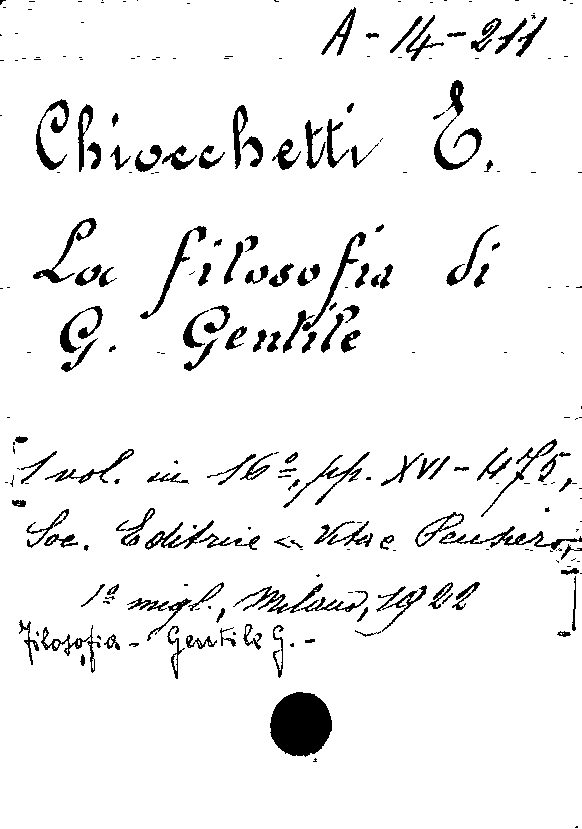 A-14-211
Chiocchetti E.
La filosofia di
G. Gentile
1 vol. in 16º, pp. XVI-475,
Soc. Editrice « Vita e Pensiero,,
1º migl., Milano, 1922
Filosofia - Gentile G. -